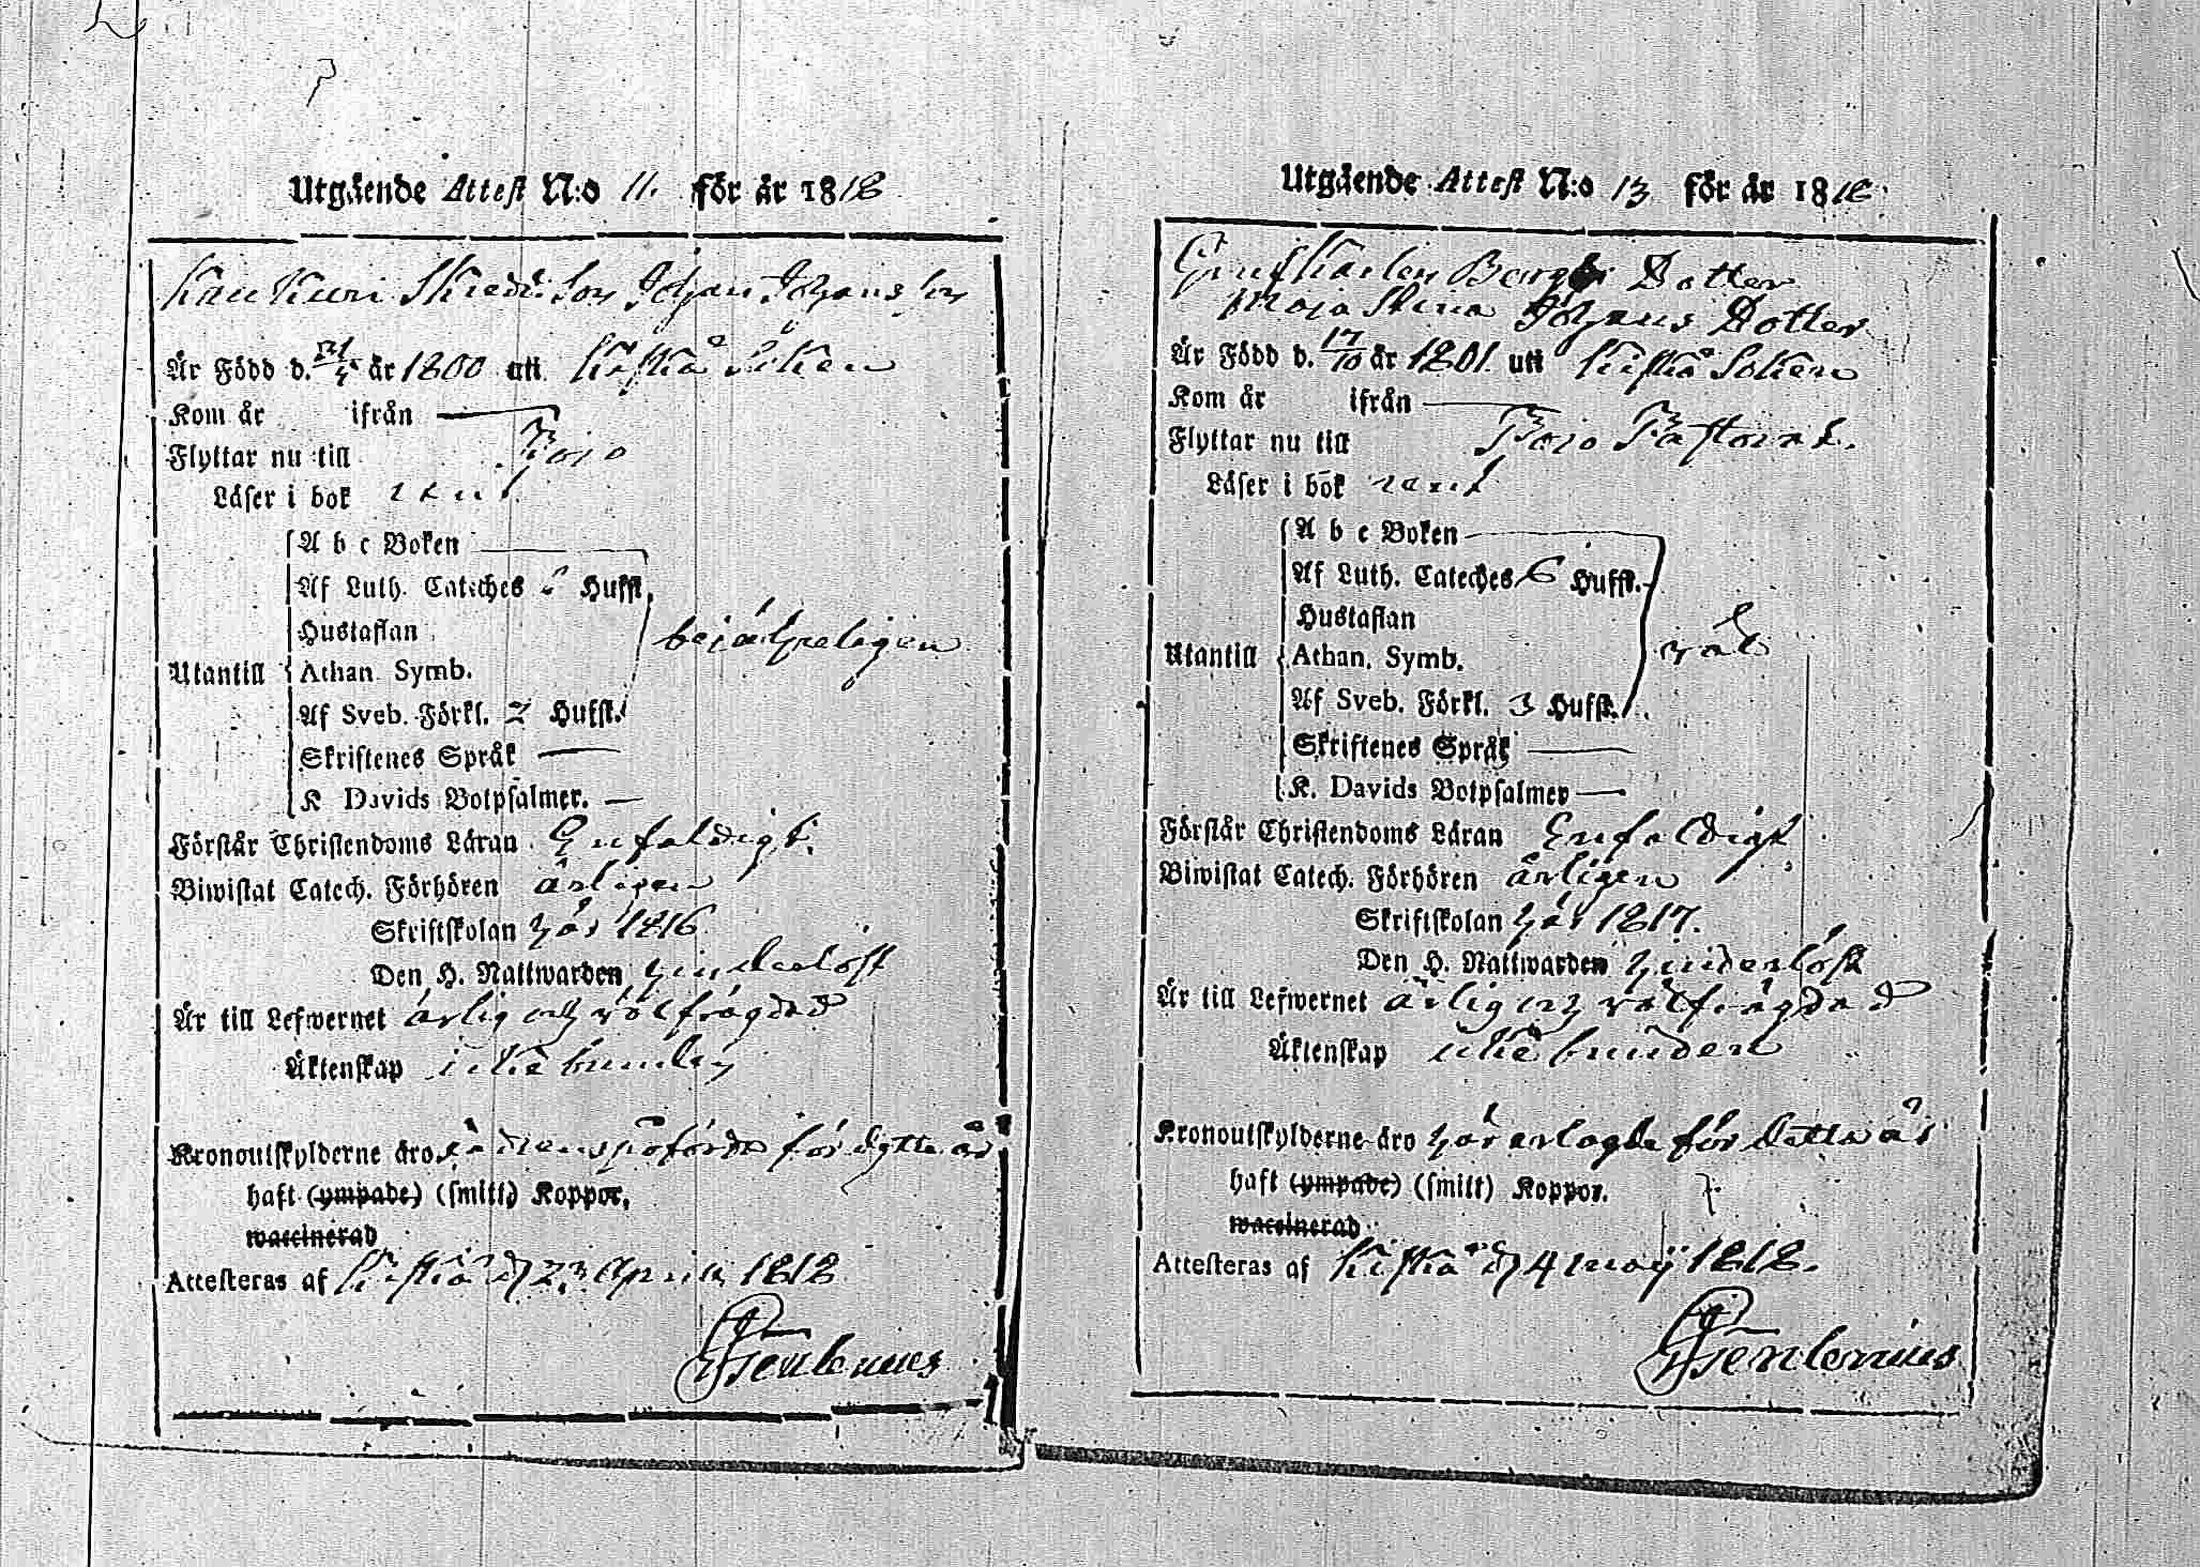 Utgående Attest N:o 11. för år 1818
Skrädd. Son Johan Johans Son
Är Född d. 31/5 år 1800 uti Kiskå Såken
Kom år ifrån
Flyttar nu till Pojo
Läser i bok rent
A b c Boken
Af Luth. Cateches Hufst.
Hustaflan
Utantill Athan. Symb.
Af Sveb. Förkl. 2 Hufst.
Skriftenes Språk
K Davids Botpsalmer.
Förstår Christendoms Läran Enfaldigt.
Biwistat Catech. Förhören årligen
Skriftskolan här 1816
Den H. Nattwarden hinderlöst
Är till Lefwernet ärlig och välfrägdad
Äktenskap icke bunden
Kronoutskylderne äro för dette år
haft (ympade) (smitt) Koppor,
waccinerad
Attesteras af Kiskå d 23 April 1818
Utgående Attest N:o 13 för år 1818.
Dotter
Maja Stina Johans Dotter
Är Född d. 17/10 år 1801. uti Kiskå Soken
Kom år ifrån
Flyttar nu till Pojo Pastorat.
Läser i bok rent
A b c Boken
Af Luth. Cateches 6 Hufst.
Hustaflan
Utantill Athan. Symb. väl
Af Sveb. Förkl. 3 Hufst.
Skriftenes Språk
K. Davids Botpsalmer
Förstår Christendoms Läran Enfaldigt,
Biwistat Catech. Förhören årligen
Skriftskolan här 1817.
Den H. Nattwarden hinderlöst
Är till Lefwernet ärlig och välfrägdad
Äktenskap icke bunden
Kronoutskylderne äro här erlagde för detta år
haft (ympade) (smitt) Koppor.
waccinerad
Attesteras af Kiskå d 4 maij 1818.